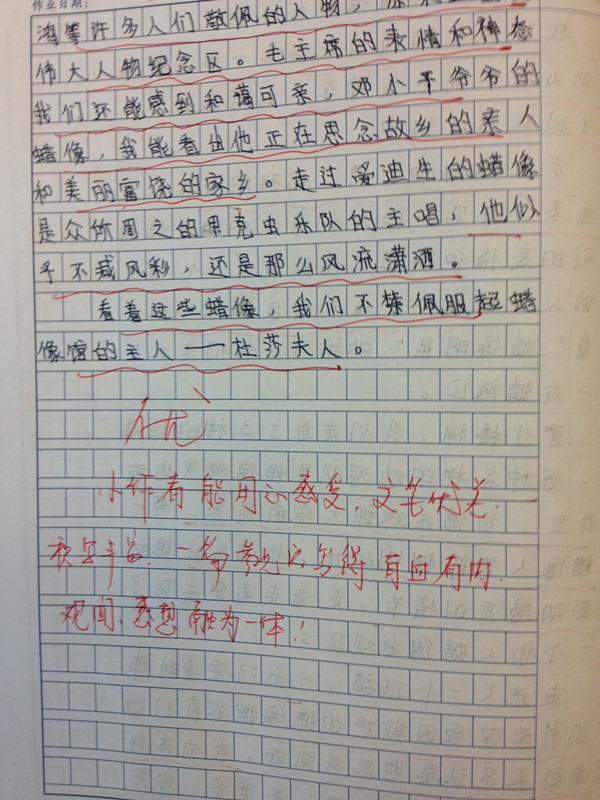 作业日期:
鸿等许多人们敬佩的人物,
伟大人物纪念区。毛主席的表情和神态
我们还能感到和蔼可亲,邓小平爷爷的
蜡像,我能看出他正在思念故乡的亲人
和美丽富饶的家乡。走过爱迪生的蜡像
是众你周之的甲克虫乐队的主唱,他似
乎不减风彩,还是那么风流潇洒。
看着这些蜡像,我们不禁佩服起蜡
像馆的主人——杜莎夫人。
优
小作者能用心感受,文笔优美,
积字丰富,一篇参观记写得有血有肉,
观闻、感想融为一体!